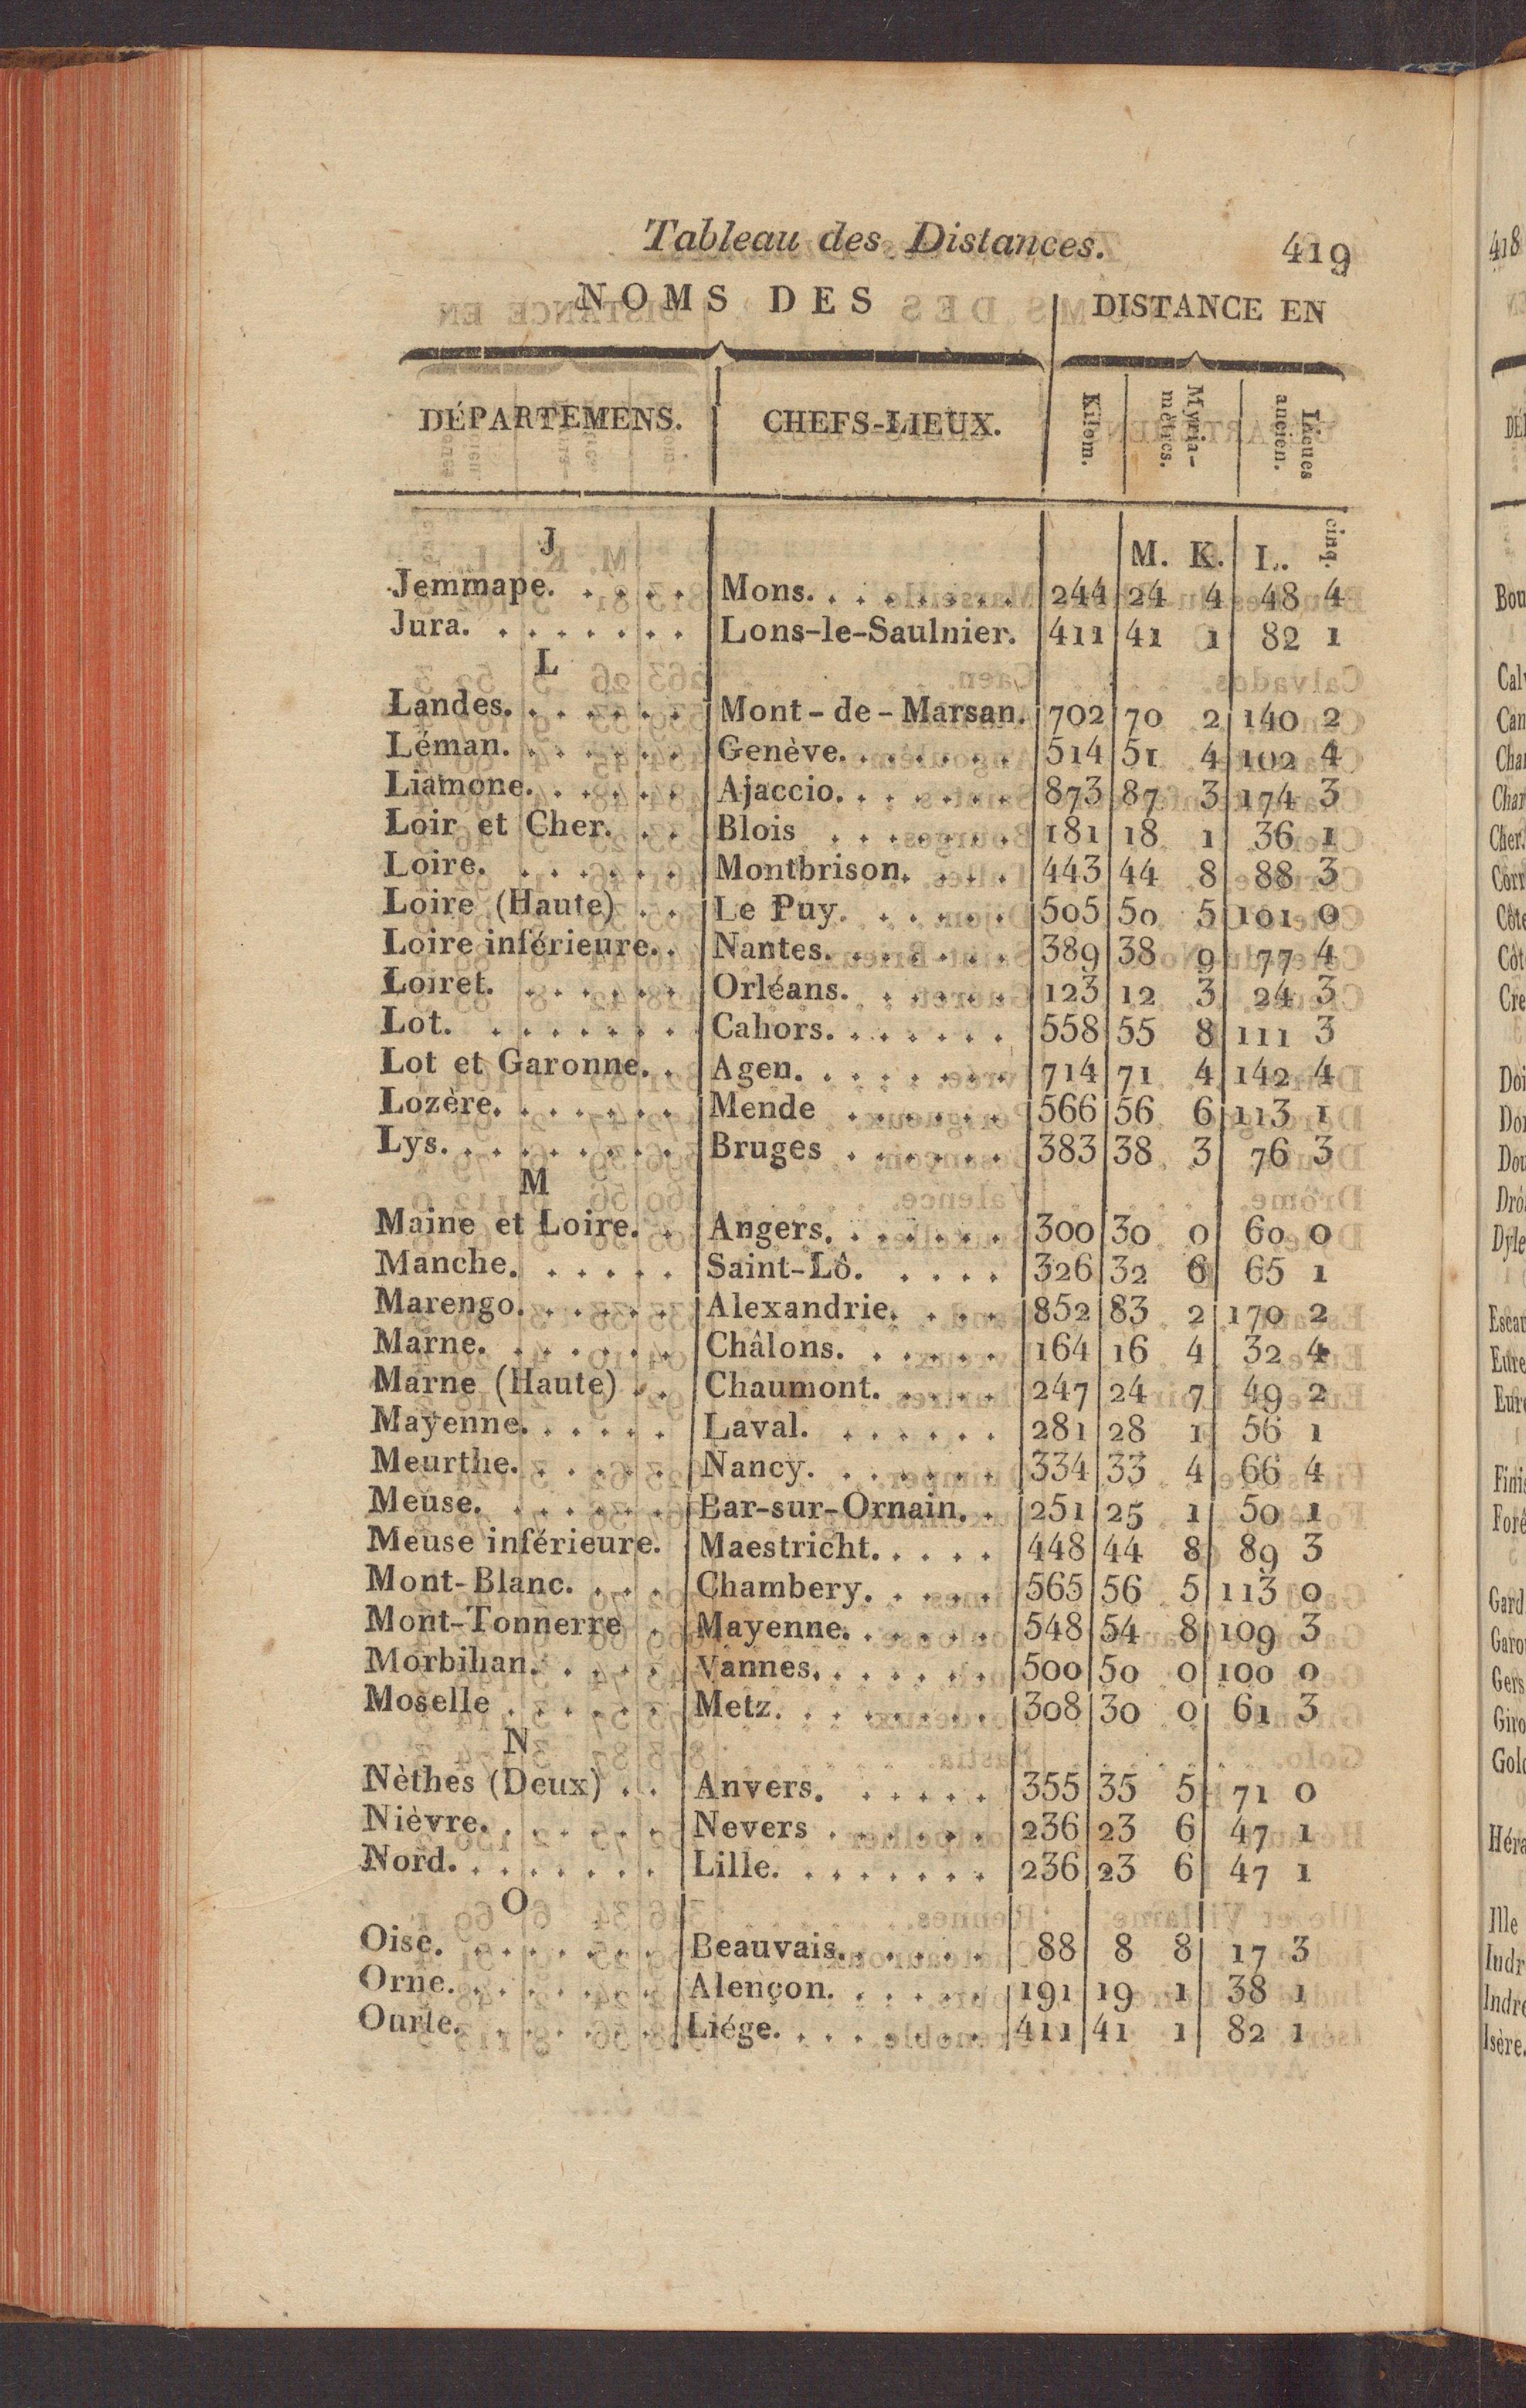 Tableau des Distances. 419
NOMS DES DISTANCE EN
DÉPARTEMENS. CHEFS-LIEUX. Kilom. Myria-mètres. Lieues ancien.
J M. K. L. cinq.
Jemmape. . . . . Mons. . . . . . . . . 244 24 4 48 4
Jura. . . . . . . . Lons-le-Saulnier. 411 41 1 82 1
L
Landes. . . . . . . Mont-de-Marsan. 702 70 2 140 2
Léman. . . . . . . Genève. . . . . . . 514 51 4 102 4
Liamone. . . . . . Ajaccio. . . . . . . 873 87 3 174 3
Loir et Cher. . . Blois . . . . . . . 181 18 1 36 1
Loire. . . . . . . Montbrison. . . . . 443 44 8 88 3
Loire (Haute) . . Le Puy. . . . . . . 505 50 5 101 0
Loire inférieure. . Nantes. . . . . . . 389 38 9 77 4
Loiret. . . . . . . Orléans. . . . . . . 123 12 3 24 3
Lot. . . . . . . . Cahors. . . . . . . 558 55 8 111 3
Lot et Garonne. . Agen. . . . . . . . 714 71 4 142 4
Lozère. . . . . . . Mende . . . . . . . 566 56 6 113 1
Lys. . . . . . . . Bruges . . . . . . . 383 38 3 76 3
M
Maine et Loire. . Angers. . . . . . . 300 30 0 60 0
Manche. . . . . . Saint-Lô. . . . . . 326 32 6 65 1
Marengo. . . . . . Alexandrie. . . . 852 83 2 170 2
Marne. . . . . . . Châlons. . . . . . 164 16 4 32 4
Marne (Haute) . . Chaumont. . . . . 247 24 7 49 2
Mayenne. . . . . . Laval. . . . . . . . 281 28 1 56 1
Meurthe. . . . . . Nancy. . . . . . . 334 33 4 66 4
Meuse. . . . . . . Bar-sur-Ornain. . 251 25 1 50 1
Meuse inférieure. Maestricht. . . . . 448 44 8 89 3
Mont-Blanc. . . . Chambery. . . . . 565 56 5 113 0
Mont-Tonnerre . Mayenne. . . . . . 548 54 8 109 3
Morbihan. . . . . Vannes. . . . . . . 500 50 0 100 0
Moselle . . . . . . Metz. . . . . . . . 308 30 0 61 3
N
Nèthes (Deux) . . Anvers. . . . . . . 355 35 5 71 0
Nièvre. . . . . . . Nevers . . . . . . . 236 23 6 47 1
Nord. . . . . . . . Lille. . . . . . . . 236 23 6 47 1
O
Oise. . . . . . . . Beauvais. . . . . . 88 8 8 17 3
Orne. . . . . . . . Alençon. . . . . . 191 19 1 38 1
Ourte. . . . . . . . Liége. . . . . . . . 411 41 1 82 1
418
Bou
Can
Cher.
Côte
Cre
Dyle
Eure
Gard
Gers
Ille
Isère.